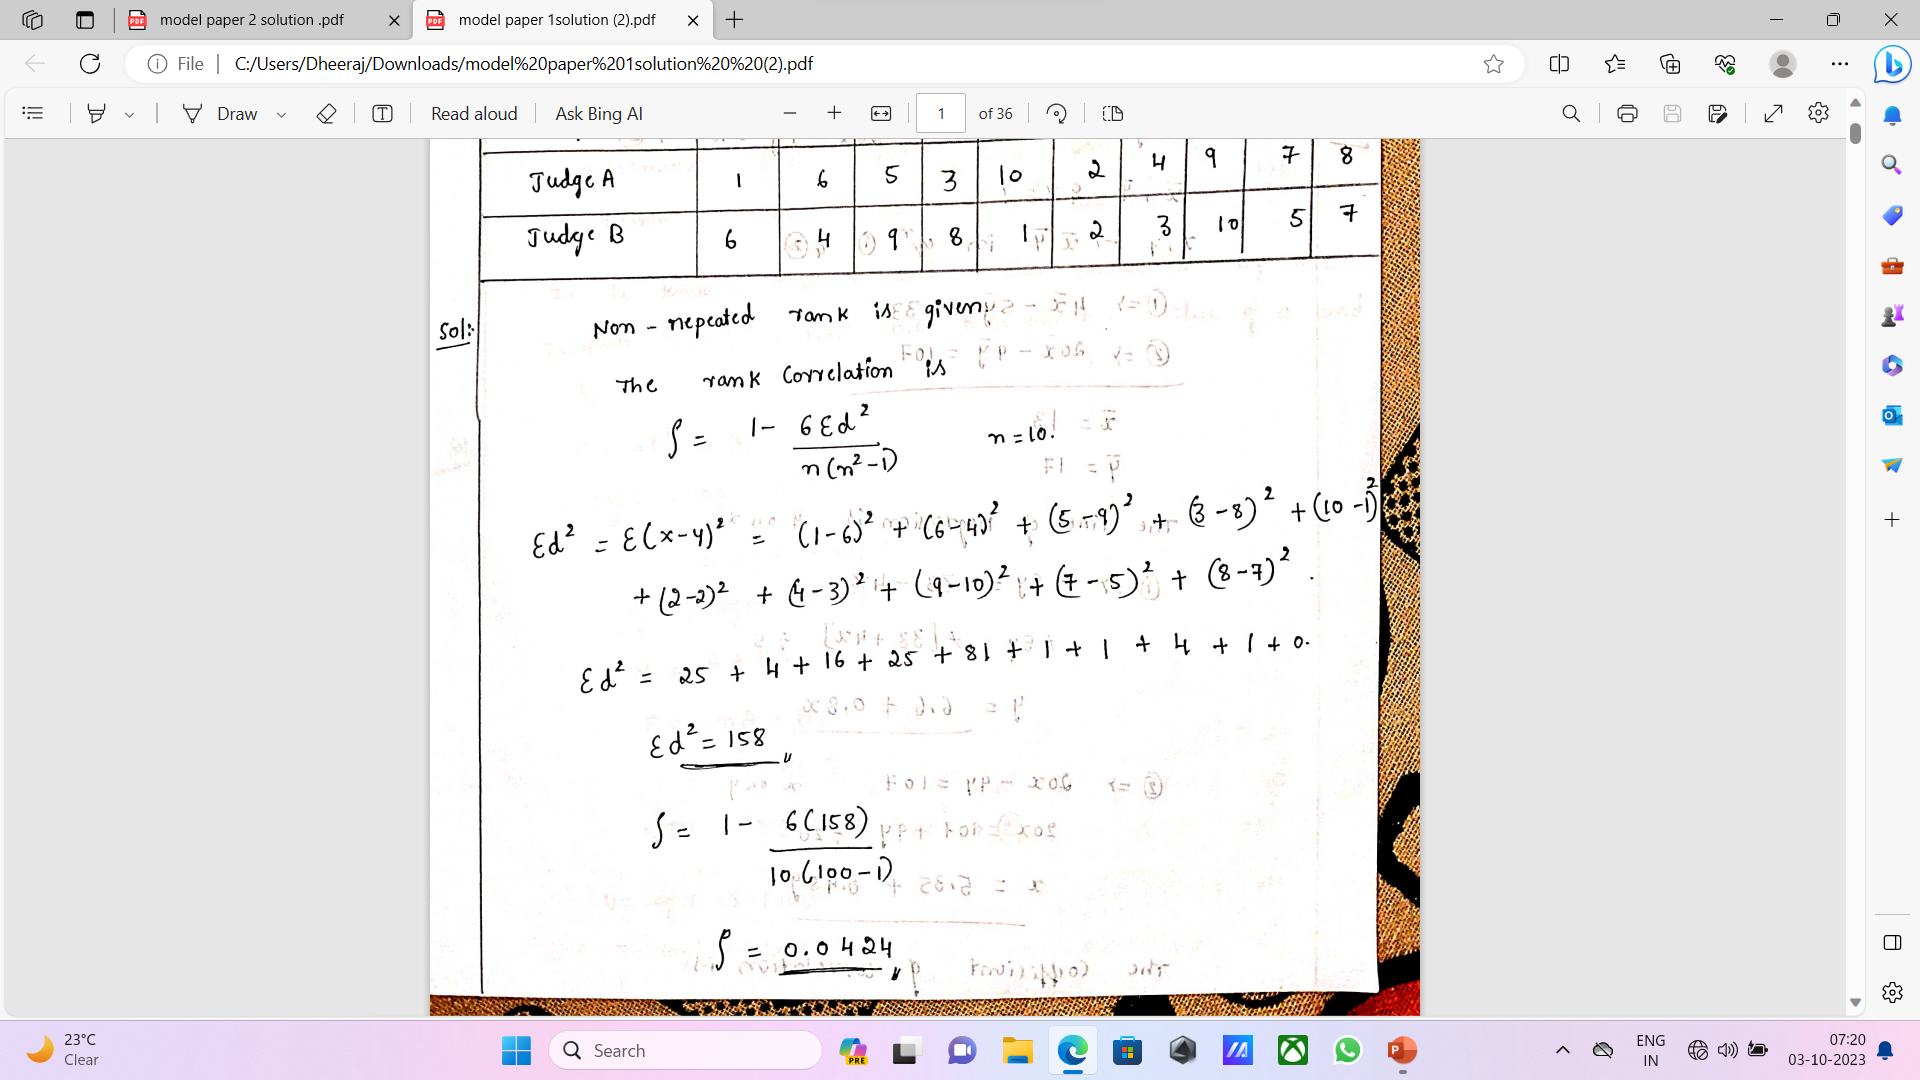 model paper 2 solution .pdf
model paper 1solution (2).pdf
File
C:/Users/Dheeraj/Downloads/model%20paper%201solution%20%20(2).pdf
Draw
Read aloud
Ask Bing AI
1 of 36
Judge A 1 6 5 3 10 2 4 9 7 8
Judge B 6 4 9 8 1 2 3 10 5 7
Sol:- Non - repeated rank is given
The rank Correlation is
ρ = 1 - 6Σd² / n(n²-1) n = 10.
Σd² = Σ(x-y)² = (1-6)² + (6-4)² + (5-9)² + (3-8)² + (10-1)²
+ (2-2)² + (4-3)² + (9-10)² + (7-5)² + (8-7)² .
Σd² = 25 + 4 + 16 + 25 + 81 + 1 + 1 + 4 + 1 + 0.
Σd² = 158
ρ = 1 - 6(158) / 10(100-1)
ρ = 0.0424
23°C
Clear
Search
PRE
ENG
IN
07:20
03-10-2023